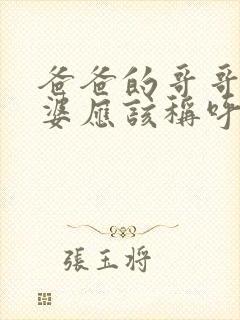 爸爸的哥哥
婆應該稱呼
張玉將